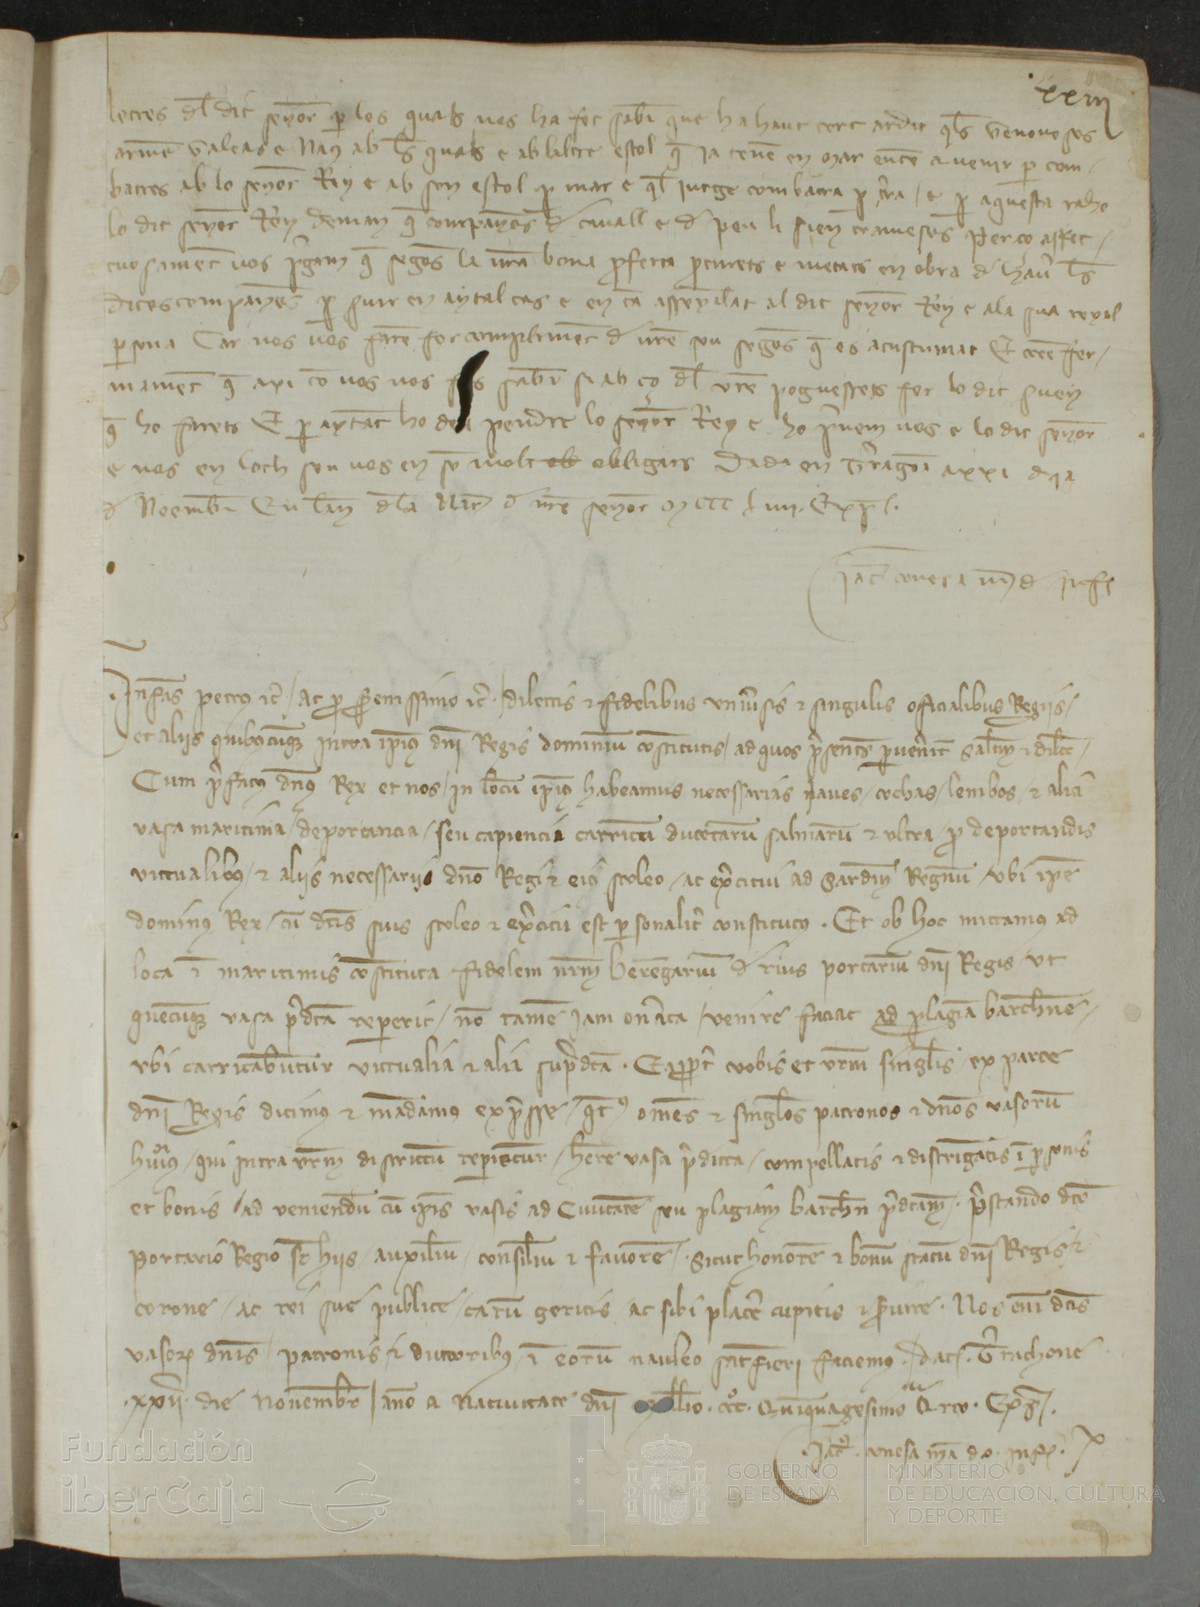 xxiij
letres dl dit senyor p les quals nos ha fet saber que ha haut cert ardit qls Genoveses
armen Galeas e Naus ab ls quals e ab laltre estol q ja tenen en mar enten a venir p com-
batres ab lo senyor Rey e ab son estol p mar e ql jutge combatra p tra / e p aquesta raho
lo dit senyor Rey deman q companyes d cavall e d peu li sien trameses Perço affec-
tuosament vos pgam q segons la vra bona pferta pcurets e metats en obra d haver ls
dites companyes p servir en aytal cas e en tan assenyalat al dit senyor Rey e ala sua reyal
persona Car nos vos farem fer compliment d vre sou segons q es acustumat E creem fer-
mament q axi co vos nos fes saber si ab ço dl vre poguessets fer lo dit servey
q ho farets E p aytant ho deu pendre lo senyor Rey e ho prenem nos e lo dit senyor
e nos en loch seu vos en som molt obligats Dada en Tragona a xxi dia
d Noembr En lany dla Nat d nre senyor Mccc L iiii. Exp l.
Jac conesa md d inffs
Infans petrus etc / ac p Serenissimo etc. dilectis et fidelibus universis et singulis officialibus Regiis /
et aliis quibuscumq intra ipius dni Regis dominium constitutis / ad quos psentes pervenerint Saltem et dilcc /
Cum pfatus dnus Rex et nos / in locum ipius habeamus necessarias naves / cochas / lembos / et alia
vasa maritima / deportancia / seu capiencia carricum ducentarum salmarum et ultra / p deportandis
victualibus / et aliis necessariis dno Regi et eius stoleo / ac exercitui ad Sardin Regnum / ubi ipe
dominus Rex / cum dcis suis stoleo et exercitu est personaliter constitutus. Et ob hoc mittamus ad
loca in maritimis constituta fidelem nrm berengarium d rius portarium dni Regis ut
quecumq vasa pdcta reperit / non tamen jam onerata / venire faciat ad plagiam barchne /
ubi carricabuntur victualia et alia supdcta. Eapropt vobis et vrum singulis / ex parte
dni Regis dicimus et mandamus expresse / qt omnes et singulos patronos et dnos vasorum
huiusmodi / qui intra vrum districtum reperientur / here vasa pdicta / compellatis et distringatis in personis
et bonis / ad veniendum cum ipis vasis ad Civitatem seu plagiam barchn pdctam. prestando dco
Portario Regio sr hiis / auxilium / consilium et favorem. Sicut honorem et bonum statum dni Regis et
corone / ac rei sue publice / carum geritis ac sibi placere cupitis et servire. Nos enim dcis
vasorum dnis / patronis et ductoribus / in eorum nauleo satisfieri faciemus. dat. Terrachone
.xxii. die Novembr anno a Nativitate dni millio. ccc. Quinquagesimo Qrto. Exp.
Jac. conesa m d. o. inffs.
Fundación
iberCaja
GOBIERNO
DE ESPAÑA
MINISTERIO
DE EDUCACIÓN, CULTURA
Y DEPORTE